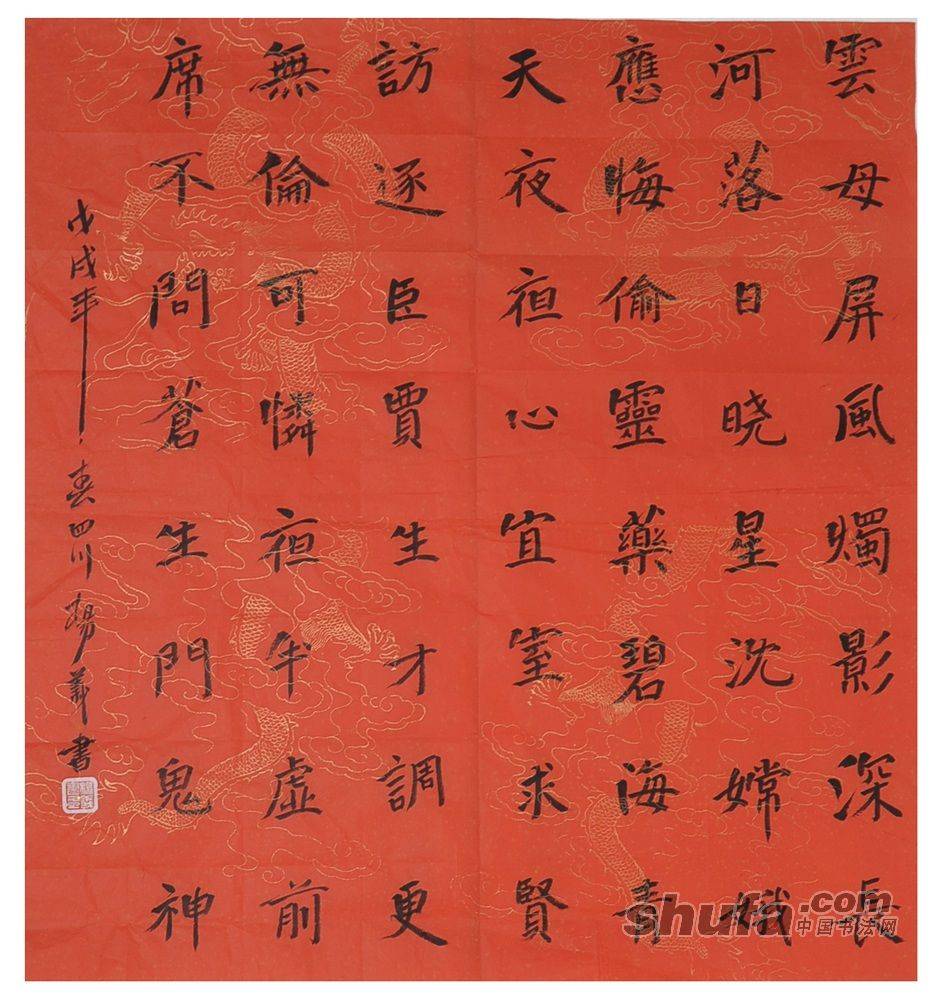 雲母屏風燭影深長
河落日晓星沈嫦娥
應悔偷靈藥碧海青
天夜亱心宜室求賢
訪逐臣賈生才調更
無倫可憐亱半虛前
席不問蒼生門鬼神
戊戌年春四川楊義書
shufa.com
中国书法网